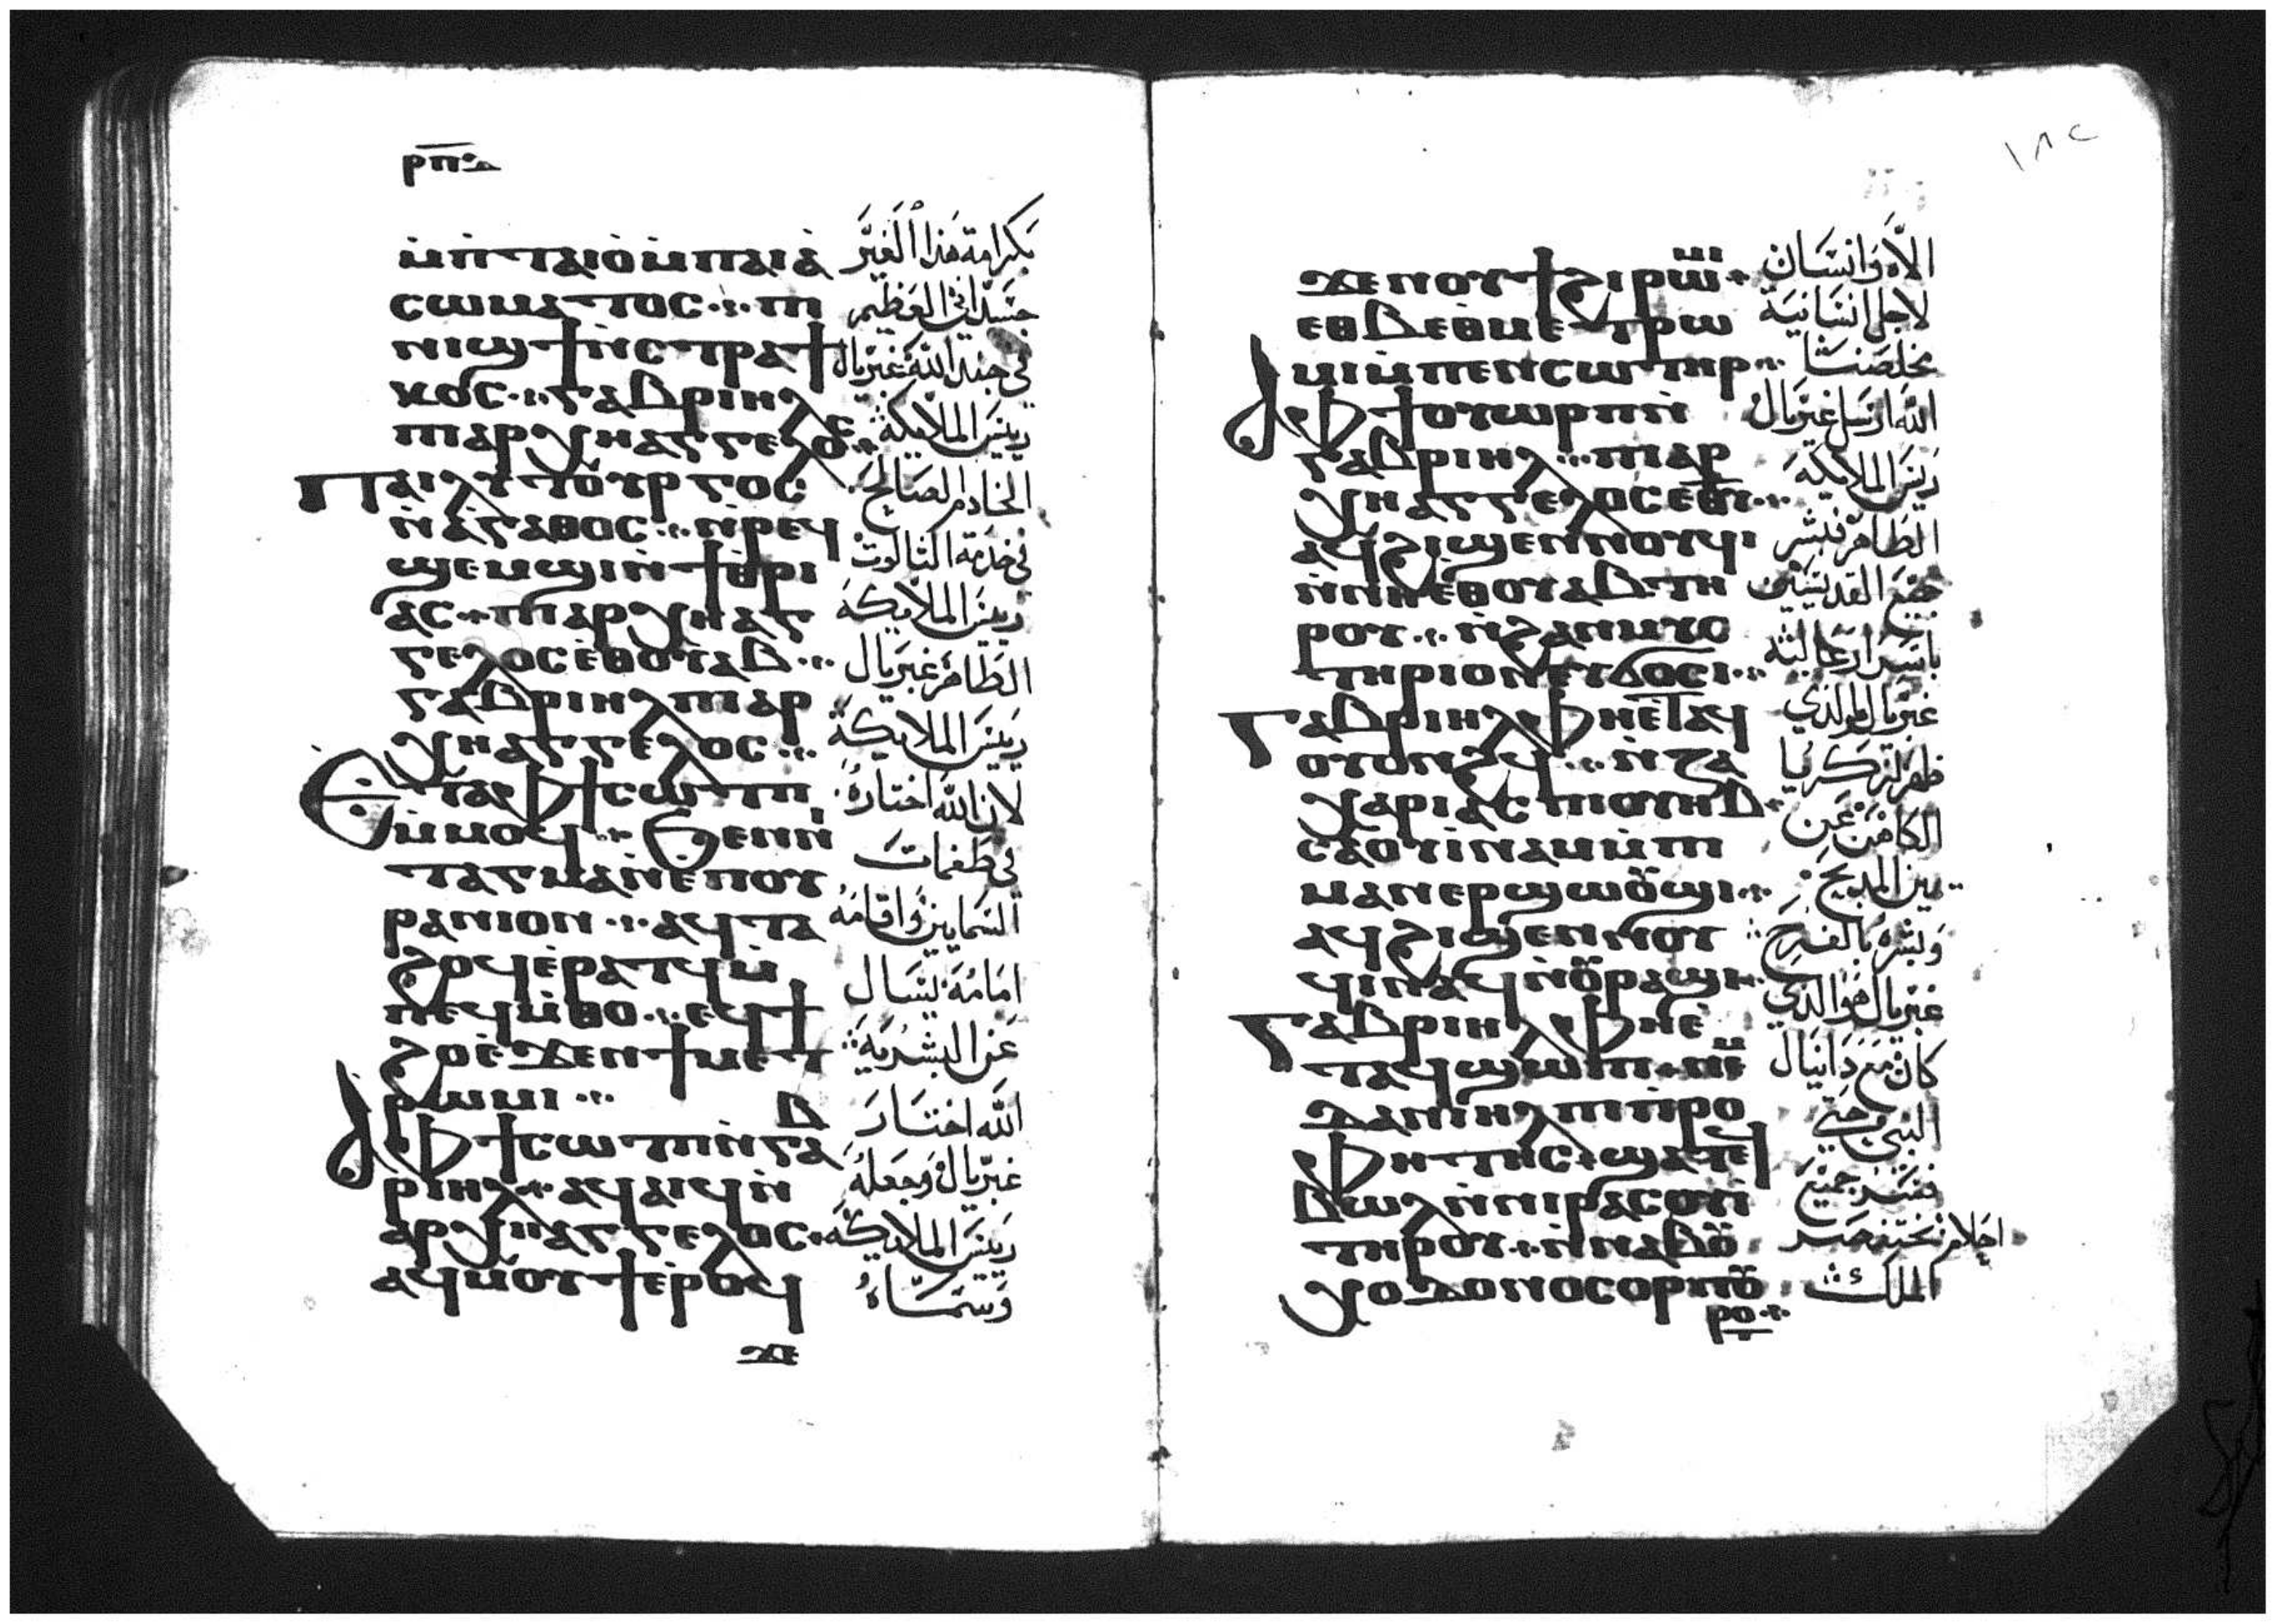 ⲣⲡⲁ
ⲙ̀ⲡ̀ⲧⲁⲓⲟ̀ⲙ̀ⲡⲁⲓⲁ̀
ⲥⲱⲙⲁⲧⲟⲥ ⲡⲓ
ⲛⲓϣϯⲛ̀ⲥⲧⲣⲁϯ
ⲕⲟⲥ ⲅⲁⲃⲣⲓⲏⲗ
ⲡⲓⲁⲣⲭⲏⲁⲅⲅⲉⲗⲟⲥ
ⲡⲁⲓⲗⲩⲧⲟⲩⲣⲅⲟⲥ
ⲛ̀ⲁ̀ⲅⲁⲑⲟⲥ ⲛ̀ⲣⲉϥ
ϣⲉⲙϣⲓⲛ̀ϯⲑⲣⲓ
ⲁⲥ ⲡⲓⲁⲣⲭⲏⲁⲅ
ⲅⲉⲗⲟⲥⲉ̀ⲑⲟⲩⲁⲃ
ⲅⲁⲃⲣⲓⲏⲗⲡⲓⲁⲣ
ⲭⲏⲁⲅⲅⲉⲗⲟⲥ
Ⲉⲧⲁⲫϯⲥⲱⲧⲡ
ⲙ̀ⲙⲟϥ ϧⲉⲛⲛⲓ
ⲧⲁⲅⲙⲁⲛ̀ⲉⲡⲟⲩ
ⲣⲁⲛⲓⲟⲛ ⲁϥⲧⲁ
ϩⲟϥⲉ̀ⲣⲁⲧϥⲙ̀
ⲡⲉϥⲙ̀ⲑⲟ ⲉϥϯ
ϩⲟⲉ̀ϫⲉⲛϯⲙⲉⲧ
ⲣⲱⲙⲓ
ⲃ
ⲁⲫϯⲥⲱⲧⲡⲛ̀ⲅⲁ
ⲣⲓⲏⲗ ⲁϥⲁⲓϥⲛ̀
ⲁⲣⲭⲏⲁⲅⲅⲉⲗⲟⲥ
ⲁϥⲙⲟⲩϯⲉ̀ⲣⲟϥ
ϫⲉ
بكرامة هذا الغير
جسداني العظيم
في جند الله غبريال
رييس الملايكة
الخادم الصالح
في خدمة الثالوث
رييس الملايكة
الطاهر غبريال
رييس الملايكة
لان الله اختاره
في طغمات
السمايين واقامه
امامه ليسال
عن البشرية
الله اختار
غبريال وجعله
رييس الملايكة
وسماه
١٨٢
ϫⲉⲛⲟⲩϯϩⲓⲣⲱⲙⲓ
ⲉⲑⲃⲉⲑⲙⲉⲧⲣⲱ
ⲙⲓⲙ̀ⲡⲉⲛⲥⲱⲧⲏⲣ
ⲁⲫϯⲟⲩⲱⲣⲡⲛ̀
ⲅⲁⲃⲣⲓⲏⲗ ⲡⲓⲁⲣ
ⲭⲏⲁⲅⲅⲉⲗⲟⲥⲉⲑⲩ
ⲁϥϩⲓϣⲉⲛⲛⲟⲩϥⲓ
ⲛ̀ⲛⲏⲉⲑⲟⲩⲁⲃⲧⲏ
ⲣⲟⲩ ⲛ̀ϩⲁⲛⲙⲩⲥ
ⲧⲏⲣⲓⲟⲛⲉⲩϭⲟⲥⲓ
Ⲅⲁⲃⲣⲓⲏⲗⲫⲏⲉ̀ⲧⲁϥ
ⲟⲩⲟⲛϩϥ ⲛ̀ⲍⲁ
ⲭⲁⲣⲓⲁⲥⲡⲓⲟⲩⲏⲃ
ⲥⲁⲟⲩⲓⲛⲁⲙⲙ̀ⲡⲓ
ⲙⲁⲛⲉⲣϣⲱⲟⲩϣⲓ
ⲁϥϩⲓϣⲉⲛⲛⲟⲩ
ϥⲓⲛⲁϥⲛ̀ⲟⲩⲣⲁϣⲓ
Ⲅⲁⲃⲣⲓⲏⲗⲫⲏⲉ̀
ⲧⲁϥϣⲱⲡⲓ ⲛⲉⲙ
ⲇⲁⲛⲓⲏⲗⲡⲓⲡⲣⲟ
ⲫⲏⲧⲏⲥ ϣⲁⲧⲉϥ
ⲃⲱⲗⲛ̀ⲛⲓⲣⲁⲥⲟⲩⲓ
ⲧⲏⲣⲟⲩ ⲛ̀ⲛⲁⲃⲟⲩ
ⲭⲟⲇⲟⲛⲟⲥⲟⲣⲡⲟⲩ
ⲣⲟ
الاه وانسان
لاجل انسانية
مخلصنا
الله ارسل غبريال
رييس الملايكة
الطاهر فبشر
جميع القديسين
باسرار عالية
غبريال هو الذي
ظهر لزكريا
الكاهن عن
يمين المدبح
وبشره بالفرح
غبريال هو الذي
كان مع دانيال
النبي حتي
فسر جميع
احلام بختنصر
الملك